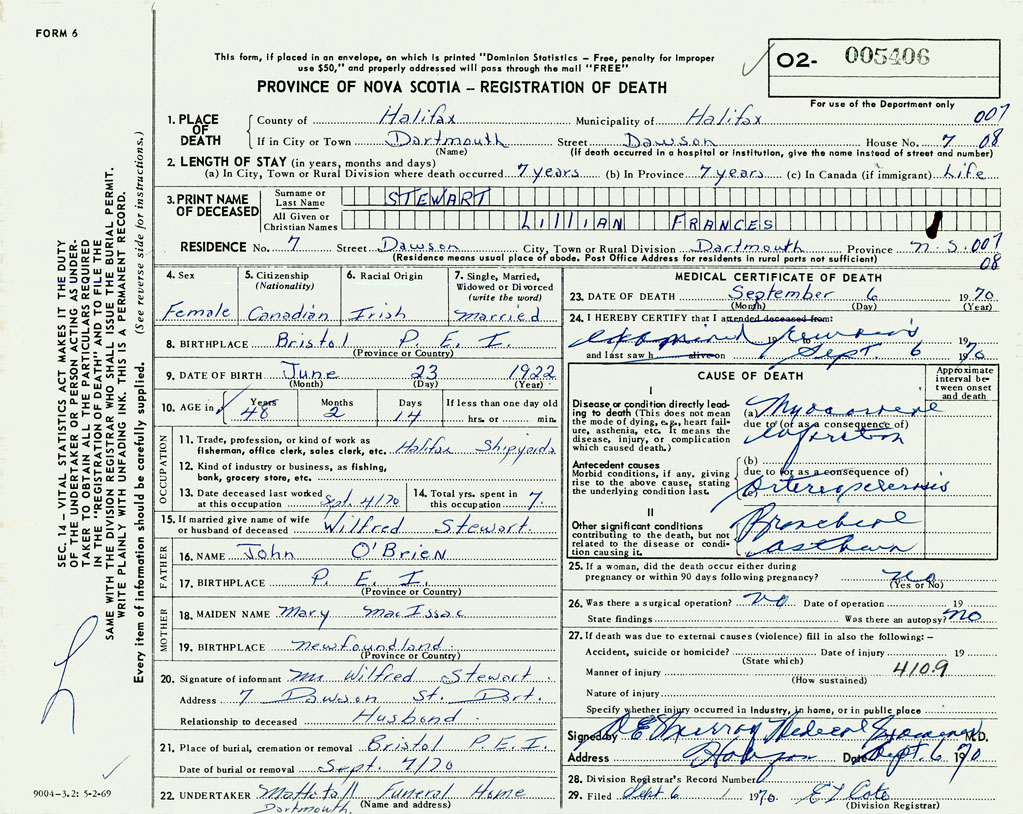 FORM 6
This form, if placed in an envelope, on which is printed "Dominion Statistics – Free, penalty for improper
use $50," and properly addressed will pass through the mail "FREE"
O2- 005406
For use of the Department only
PROVINCE OF NOVA SCOTIA – REGISTRATION OF DEATH
1. PLACE OF DEATH County of Halifax Municipality of Halifax 007
If in City or Town Dartmouth Street Dawson House No. 7 08
(Name) (If death occurred in a hospital or institution, give the name instead of street and number)
2. LENGTH OF STAY (in years, months and days)
(a) In City, Town or Rural Division where death occurred 7 years (b) In Province 7 years (c) In Canada (if immigrant) Life
3. PRINT NAME OF DECEASED Surname or Last Name STEWART
All Given or Christian Names LILLIAN FRANCES
RESIDENCE No. 7 Street Dawson City, Town or Rural Division Dartmouth Province N.S. 007
(Residence means usual place of abode. Post Office Address for residents in rural ports not sufficient) 08
4. Sex Female
5. Citizenship (Nationality) Canadian
6. Racial Origin Irish
7. Single, Married, Widowed or Divorced (write the word) Married
8. BIRTHPLACE Bristol P.E.I.
(Province or Country)
9. DATE OF BIRTH June 23 1922
(Month) (Day) (Year)
10. AGE in Years 48 Months 2 Days 14 If less than one day old hrs. or min.
OCCUPATION
11. Trade, profession, or kind of work as fisherman, office clerk, sales clerk, etc. Halifax Shipyards
12. Kind of industry or business, as fishing, bank, grocery store, etc.
13. Date deceased last worked at this occupation Sept. 4/70 14. Total yrs. spent in this occupation 7.
15. If married give name of wife or husband of deceased Wilfred Stewart.
FATHER
16. NAME John O'BRIEN
17. BIRTHPLACE P.E.I.
(Province or Country)
MOTHER
18. MAIDEN NAME Mary MacIssac
19. BIRTHPLACE Newfoundland
(Province or Country)
20. Signature of informant Mr Wilfred Stewart.
Address 7 Dawson St. Dart.
Relationship to deceased Husband.
21. Place of burial, cremation or removal Bristol P.E.I.
Date of burial or removal Sept. 9/70
22. UNDERTAKER Mattatall Funeral Home
(Name and address)
Dartmouth.
MEDICAL CERTIFICATE OF DEATH
23. DATE OF DEATH September 6 1970
(Month) (Day) (Year)
24. I HEREBY CERTIFY that I attended deceased from:
examined remains
19 to
and last saw h alive on Sept 6 1970
CAUSE OF DEATH
Approximate interval between onset and death
I
Disease or condition directly leading to death (This does not mean the mode of dying, e.g., heart failure, asthenia, etc. It means the disease, injury, or complication which caused death.)
(a) Myocardial
due to (or as a consequence of)
infarction
Antecedent causes
Morbid conditions, if any, giving rise to the above cause, stating the underlying condition last.
(b)
due to (or as a consequence of)
(c) Arteriosclerosis
II
Other significant conditions contributing to the death, but not related to the disease or condition causing it.
Bronchial
asthma
25. If a woman, did the death occur either during pregnancy or within 90 days following pregnancy? No
(Yes or No)
26. Was there a surgical operation? No Date of operation 19
State findings Was there an autopsy? No
27. If death was due to external causes (violence) fill in also the following: –
Accident, suicide or homicide? Date of injury 19
(State which)
Manner of injury 410.9
(How sustained)
Nature of injury
Specify whether injury occurred in industry, in home, or in public place
Signed by Murray Medical Examiner M.D.
Address Halifax Date Sept. 6 1970
28. Division Registrar's Record Number
29. Filed Sept 6 1970 Cote
(Division Registrar)
SEC. 14 – VITAL STATISTICS ACT MAKES IT THE DUTY
OF THE UNDERTAKER OR PERSON ACTING AS UNDER-
TAKER TO OBTAIN ALL THE PARTICULARS REQUIRED
IN THE "REGISTRATION OF DEATH" AND TO FILE THE
SAME WITH THE DIVISION REGISTRAR WHO SHALL ISSUE THE BURIAL PERMIT.
WRITE PLAINLY WITH UNFADING INK. THIS IS A PERMANENT RECORD.
Every item of information should be carefully supplied. (See reverse side for instructions.)
9004-3.2: 5-2-69